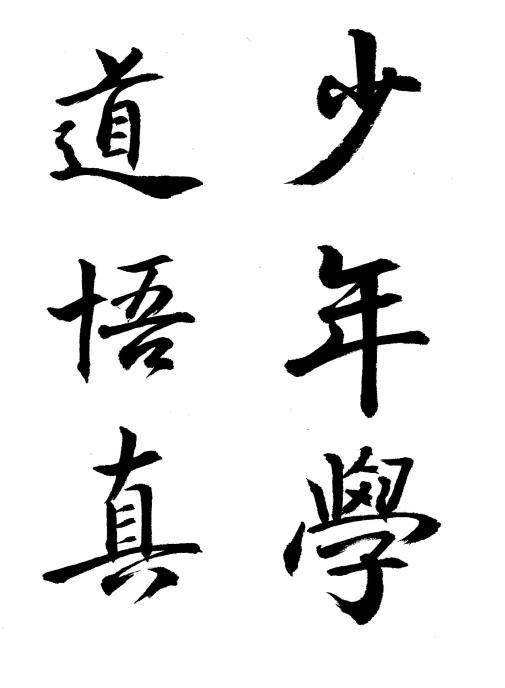 少年學
道悟真